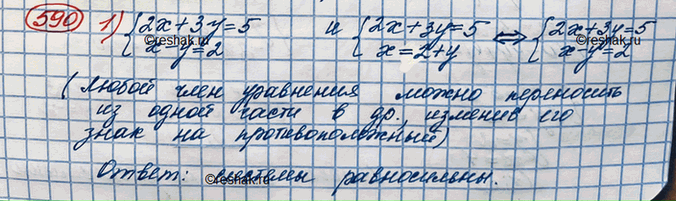 590 1) {2x+3y=5 и {2x+3y=5 ⇔ {2x+3y=5
x-y=2 x=2+y x-y=2
©reshak.ru ©reshak.ru
(Любой член уравнения можно переносить
из одной части в др., изменив его
знак на противоположный)
Ответ: системы равносильны.
©reshak.ru